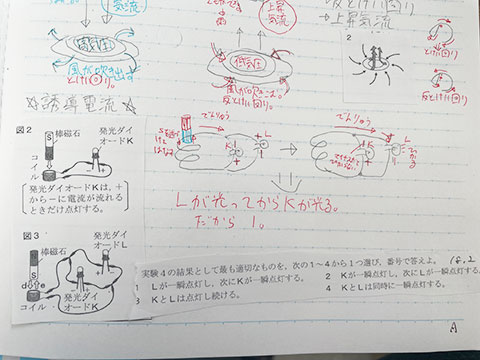 気流
高気圧
風が吹き出す
とけい回り。
上昇
気流
低気圧
風がふきこむ。
反とけい回り。
反とけい回り
→上昇気流
2
とけい回り
反とけい回り
☆誘導電流☆
図2
棒磁石
S
発光ダイ
オードK
コイル
発光ダイオードKは、+
から−に電流が流れる
ときだけ点灯する。
でんりゅう
L
K
でんりゅう
L
K
ひかる
Lが光ってからKが光る。
だから 1。
図3
棒磁石
S
発光ダイ
オードL
コイル
発光ダイ
オードK
実験4の結果として最も適切なものを、次の1〜4から1つ選び、番号で答えよ。
1 Lが一瞬点灯し、次にKが一瞬点灯する。
2 Kが一瞬点灯し、次にLが一瞬点灯する。
3 KとLは点灯し続ける。
4 KとLは同時に一瞬点灯する。
A